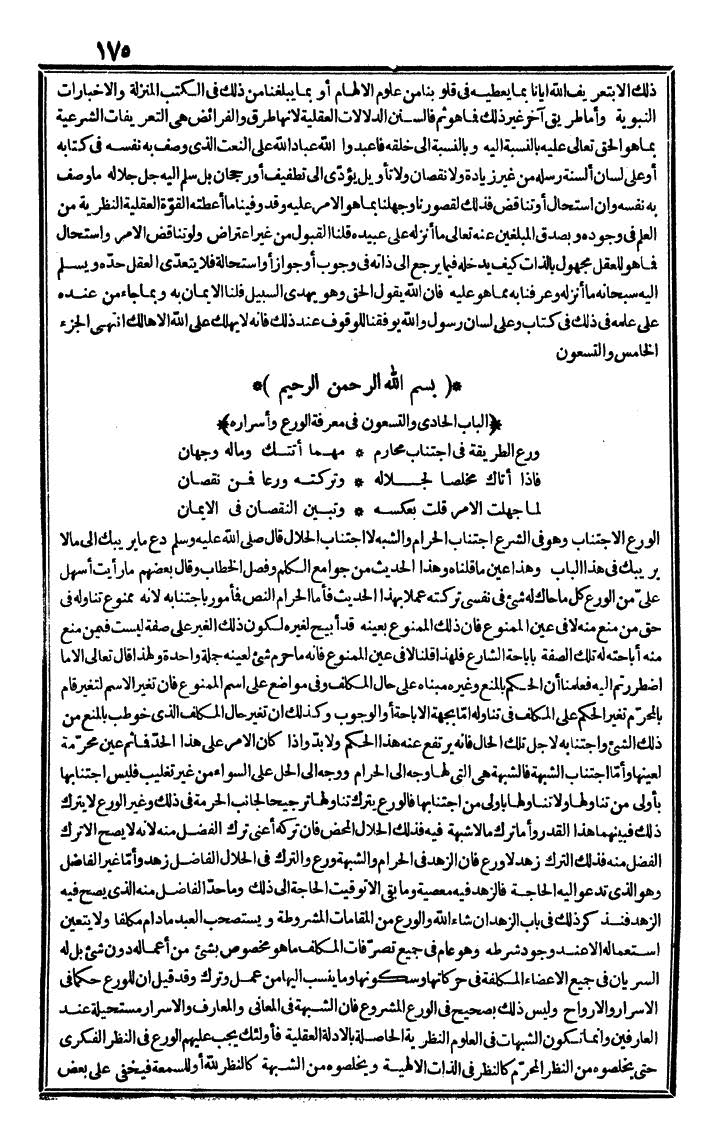 ١٧٥
ذلك الا بتعريف الله ايانا بما يعطيه فى قلوبنا من علوم الالهام أو بما يبلغنا من ذلك فى الكتب المنزلة والاخبارات
النبوية وأما طريق آخر غير ذلك فما هو ثم فالسنن الدلالات العقلية لانها طرق والفرائض هى التعريفات الشرعية
بما هو الحق تعالى عليه بالنسبة اليه وبالنسبة الى خلقه فاعبدوا الله عباد الله على النعت الذى وصف به نفسه فى كتابه
أو على لسان ألسنة رسله من غير زيادة ولا نقصان ولا تأويل يؤدّى الى تطفيف أو رجحان بل سلم اليه جل جلاله ما وصف
به نفسه وان استحال أو تناقض فذلك لقصورنا وجهلنا بما هو الامر عليه وقد وفينا ما أعطته القوّة العقلية النظرية من
العلم فى وجوده وبصدق المبلغين عنه تعالى ما أنزله على عبيده قلنا القبول من غير اعتراض ولو تناقض الامر واستحال
فما هو للعقل مجهول بالذات كيف يدخله فيما يرجع الى ذاته فى وجوب أو جواز أو استحالة فلا يتعدّى العقل حدّه ويسلم
اليه سبحانه ما أنزله وعرفنا به مما هو عليه فان الله يقول الحق وهو يهدى السبيل فلنا الايمان به وبما جاء من عنده
على علمه فى ذلك فى كتاب وعلى لسان رسول والله يوفقنا للوقوف عند ذلك فانه لا يهلك على الله الا هالك انتهى الجزء
الخامس والتسعون
*( بسم الله الرحمن الرحيم )*
*(الباب الحادى والتسعون فى معرفة الورع وأسراره)*
ورع الطريقة فى اجتناب محارم * مهما أتتك وماله وجهان
فاذا أتاك مخلصا لجلاله * وتركته ورعا فمن نقصان
لما جهلت الامر قلت بعكسه * وتبين النقصان فى الايمان
الورع الاجتناب وهو فى الشرع اجتناب الحرام والشبه لا اجتناب الحلال قال صلى الله عليه وسلم دع ما يريبك الى مالا
يريبك فى هذا الباب وهذا عين ما قلناه وهذا الحديث من جوامع الكلم وفصل الخطاب وقال بعضهم ما رأيت أسهل
علىّ من الورع كل ما حاك له شئ فى نفسى تركته عملا بهذا الحديث فأما الحرام النص فمأمور باجتنابه لانه ممنوع تناوله فى
حق من منع منه لا فى عين الممنوع فان ذلك الممنوع بعينه قد أبيح لغيره لكون ذلك الغير على صفة ليست فيمن منع
منه أباحته له تلك الصفة باباحة الشارع فلهذا قلنا لا فى عين الممنوع فانه ما حرم شئ لعينه جملة واحدة ولهذا قال تعالى الا ما
اضطررتم اليه فعلمنا أن الحكم بالمنع وغيره مبناه على حال المكلف وفى مواضع على اسم الممنوع فان تغير الاسم لتغير قام
بالمحرّم تغير الحكم على المكلف فى تناوله امّا بجهة الاباحة أو الوجوب وكذلك ان تغير حال المكلف الذى خوطب بالمنع من
ذلك الشئ واجتنابه لاجل تلك الحال فانه يرتفع عنه هذا الحكم ولا بدّ واذا كان الامر على هذا الحدّ فما ثم عين محرّمة
لعينها وأمّا اجتناب الشبهة فالشبهة هى التى لها وجه الى الحرام ووجه الى الحل على السواء من غير تغليب فليس اجتنابها
بأولى من تناولها ولا تناولها باولى من اجتنابها فالورع يترك تناولها ترجيحا لجانب الحرمة فى ذلك وغير الورع لا يترك
ذلك فبينهما هذا القدر وأما ترك ما لا شبهة فيه فذلك الحلال المحض فان تركه أعنى ترك الفضل منه لانه لا يصح الا ترك
الفضل منه فذلك الترك زهد لا ورع فان الزهد فى الحرام والشبهة ورع والترك فى الحلال الفاضل زهد وأمّا غير الفاضل
وهو الذى تدعو اليه الحاجة فالزهد فيه معصية وما بقى الا توقيت الحاجة الى ذلك وما حدّ الفاضل منه الذى يصح فيه
الزهد فنذكر ذلك فى باب الزهد ان شاء الله والورع من المقامات المشروطة ويستصحب العبد مادام مكلفا ولا يتعين
استعماله الا عند وجود شرطه وهو عام فى جميع تصرّفات المكلف ما هو مخصوص بشئ من أعماله دون شئ بل له
السريان فى جميع الاعضاء المكلفة فى حركاتها وسكونها وما ينسب اليها من عمل وترك وقد قيل ان للورع حكما فى
الاسرار والارواح وليس ذلك بصحيح فى الورع المشروع فان الشبهة فى المعانى والمعارف والاسرار مستحيلة عند
العارفين وانما تكون الشبهات فى العلوم النظرية الحاصلة بالادلة العقلية فأولئك يجب عليهم الورع فى النظر الفكرى
حتى يخلصوه من النظر المحرّم كالنظر فى الذات الالهية ويخلصوه من الشبهة كالنظر لله أو للسمعة فيخفى على بعض